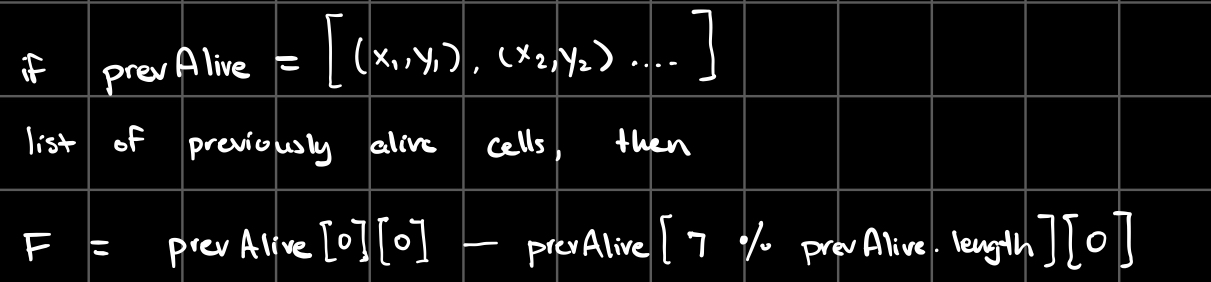 if prevAlive = [(x₁,y₁), (x₂,y₂) ....]
list of previously alive cells, then
F = prevAlive[0][0] — prevAlive[7 % prevAlive.length][0]